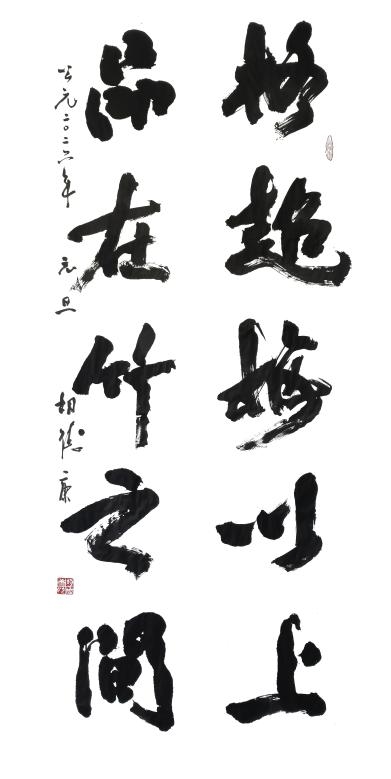 格超梅以上
品在竹之間
公元二〇二六年 元旦 胡德康